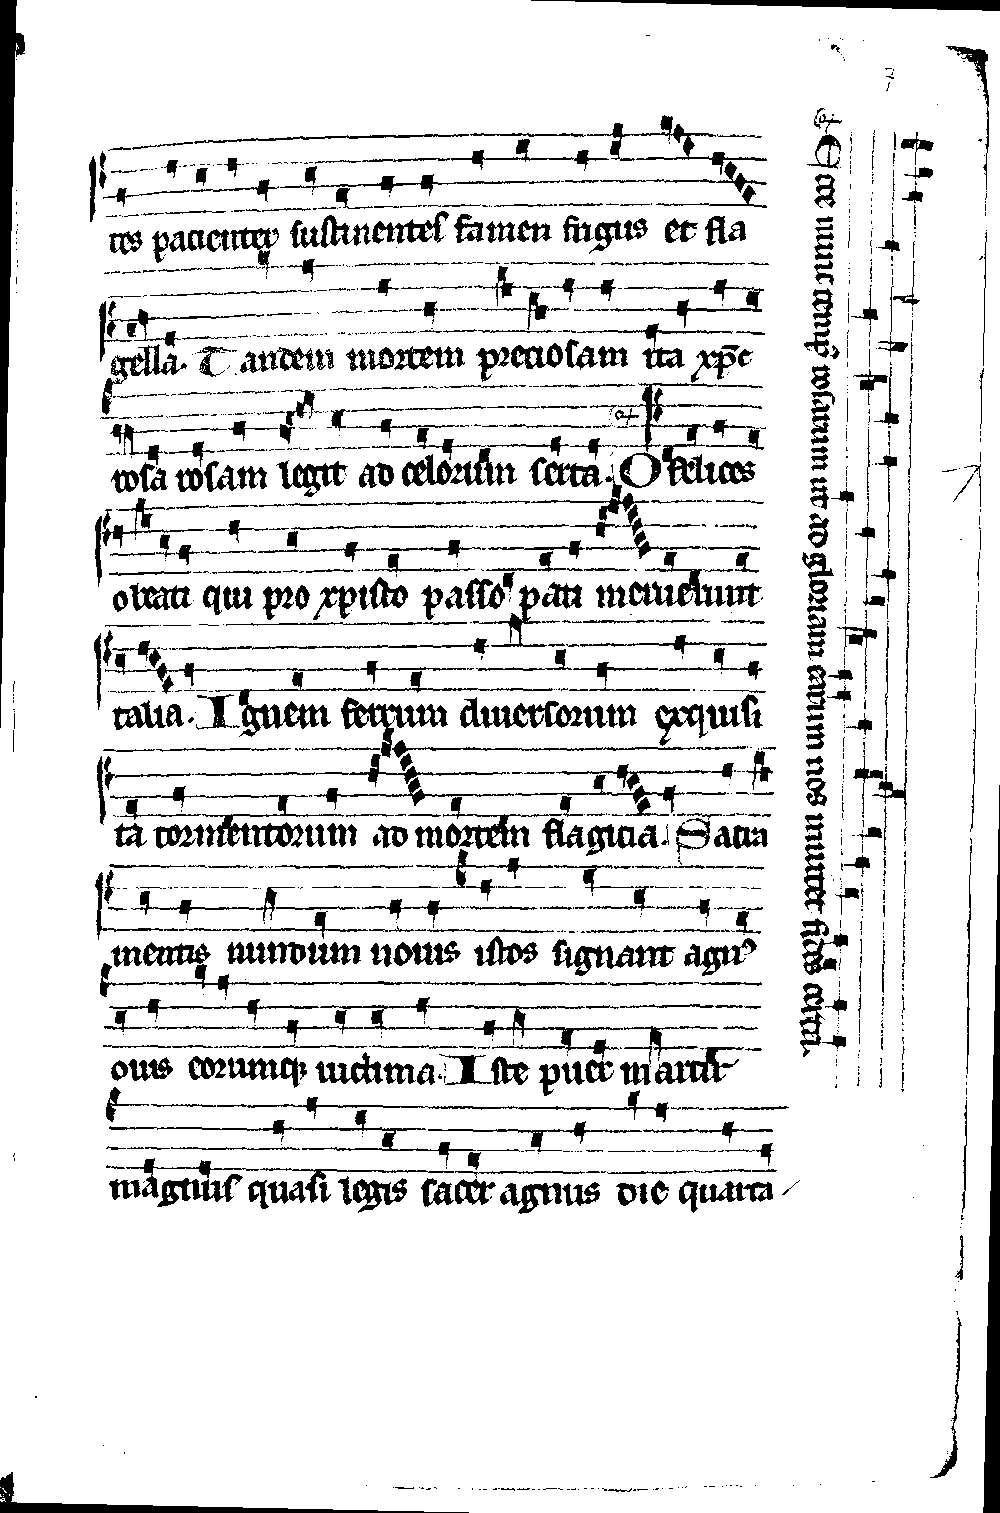 tes pacienter sustinentes famen frigus et fla
gella. Tandem mortem preciosam ita xp̄c
rosa rosam legit ad celorum serta. O felices
o beati qui pro xpisto passo pati meruerunt
talia. Ignem ferrum diuersorum exquisi
ta tormentorum ad mortem flagicia. Sacra
mentis nundum nouis istos signant agnꝰ
ouis eorumqꝫ uictima. Iste puer martir
magnus quasi legis sacer agnus die quarta
Ecce nunc temp̄ rosarum ut ad gloriam earum nos inuitet fides certa.